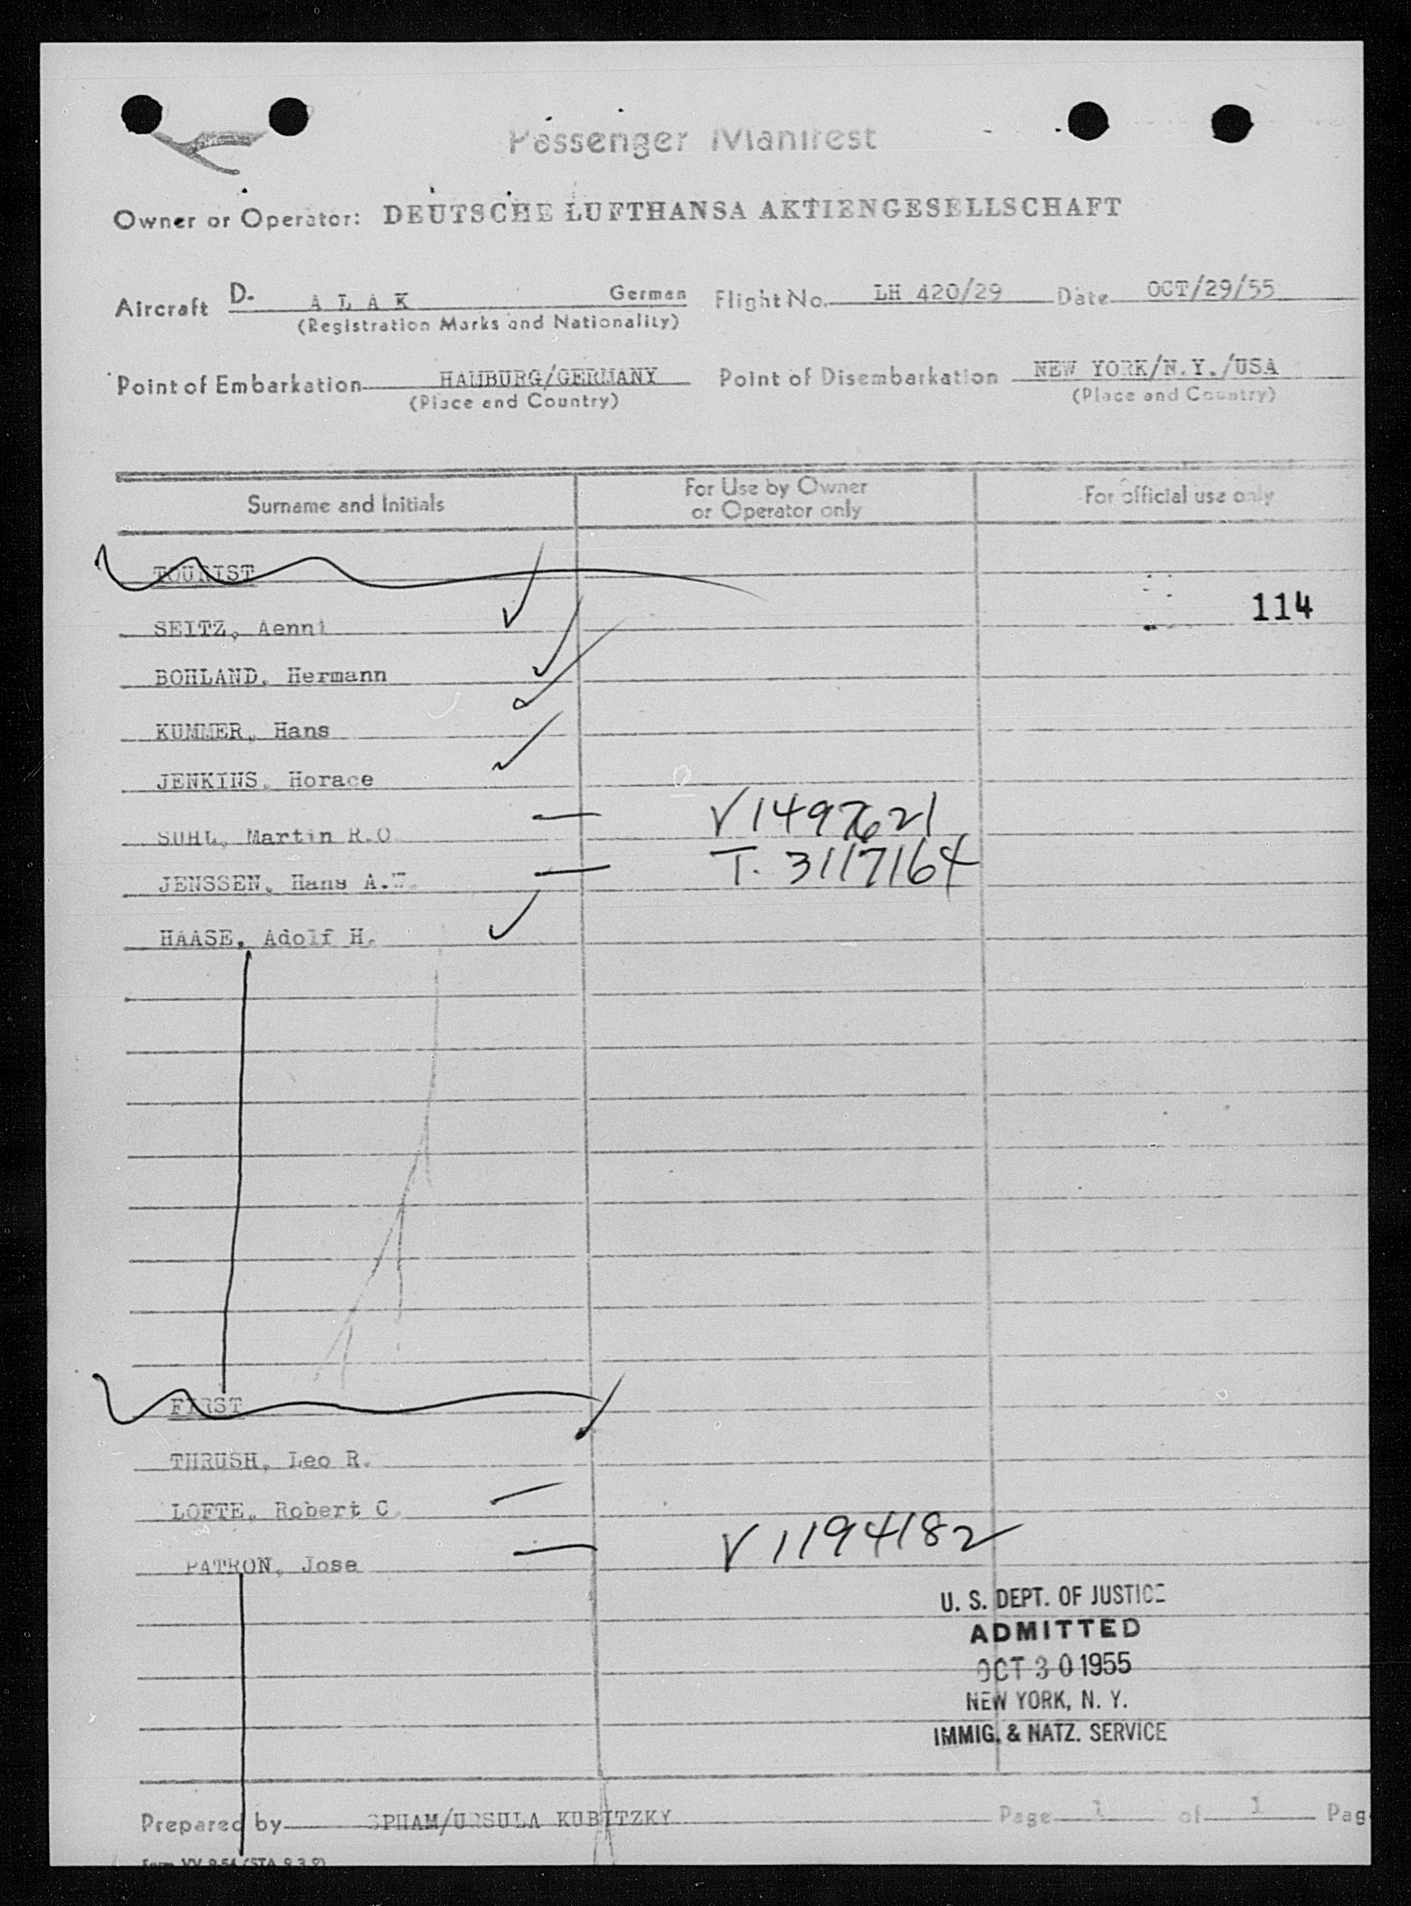 Passenger Manifest
Owner or Operator: DEUTSCHE LUFTHANSA AKTIENGESELLSCHAFT
Aircraft D. A L A K German Flight No. LH 420/29 Date OCT/29/55
(Registration Marks and Nationality)
Point of Embarkation HAMBURG/GERMANY Point of Disembarkation NEW YORK/N.Y./USA
(Place and Country) (Place and Country)
Surname and Initials For Use by Owner or Operator only For official use only
TOURIST
114
SEITZ, Aenni
BOHLAND, Hermann
KUMMER, Hans
JENKINS, Horace
SUHL, Martin R.O. V 1497621
JENSSEN, Hans A. T. 3117164
HAASE, Adolf H.
FIRST
THRUSH, Leo R.
LOFTE, Robert C.
PATRON, Jose V 1194182
U. S. DEPT. OF JUSTICE
ADMITTED
OCT 30 1955
NEW YORK, N. Y.
IMMIG. & NATZ. SERVICE
Prepared by PHAM/URSULA KUBITZKY Page 1 of 1 Pag